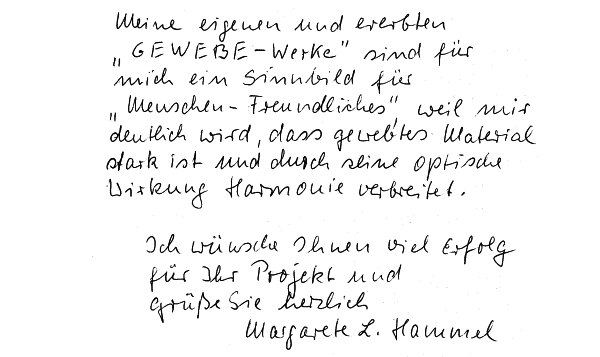 Meine eigenen und ererbten
„GEWEBE-Werke" sind für
mich ein Sinnbild für
„Menschen-Freundliches", weil mir
deutlich wird, dass gewebtes Material
stark ist und durch seine optische
Wirkung Harmonie verbreitet.
Ich wünsche Ihnen viel Erfolg
für Ihr Projekt und
grüße Sie herzlich
Margarete L. Hammel